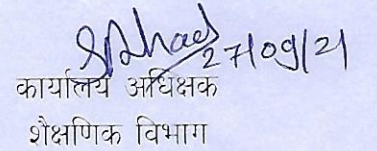 27/09/21
कार्यालय अधिक्षक
शैक्षणिक विभाग